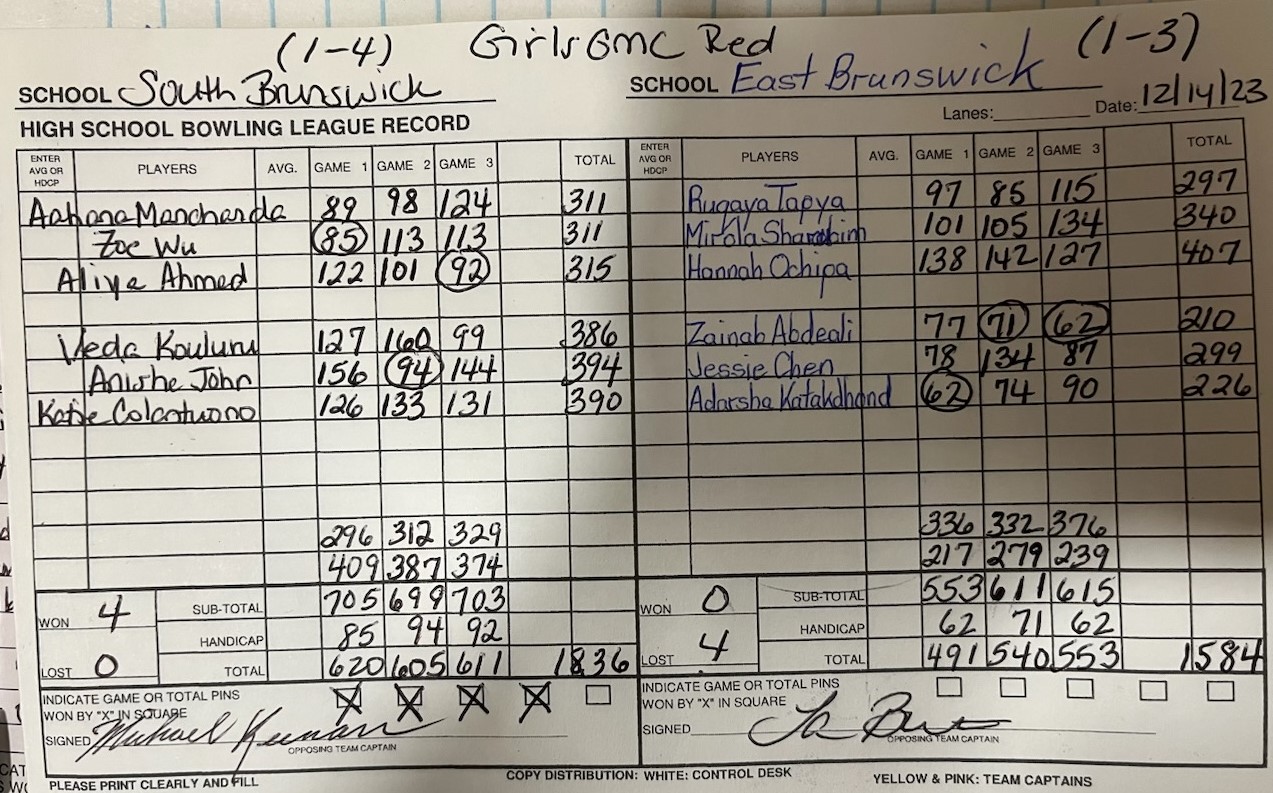 (1-4) Girls GMC Red (1-3)
SCHOOL South Brunswick SCHOOL East Brunswick
HIGH SCHOOL BOWLING LEAGUE RECORD Lanes: Date: 12/14/23
ENTER AVG OR HDCP PLAYERS AVG. GAME 1 GAME 2 GAME 3 TOTAL ENTER AVG OR HDCP PLAYERS AVG. GAME 1 GAME 2 GAME 3 TOTAL
Aahana Manchanda 89 98 124 311 Ruqaya Tapya 97 85 115 297
Zoe Wu 85 113 113 311 Mirola 101 105 134 340
Aliya Ahmed 122 101 92 315 Hannah Ochipa 138 142 127 407
Veda Kouluru 127 160 99 386 Zainab Abdeali 77 71 62 210
Anishe John 156 94 144 394 Jessie Chen 78 134 87 299
Katie Colantuono 126 133 131 390 Adarsha Katakdhond 62 74 90 226
296 312 329 336 332 376
409 387 374 217 279 239
WON 4 SUB-TOTAL 705 699 703 WON 0 SUB-TOTAL 553 611 615
HANDICAP 85 94 92 HANDICAP 62 71 62
LOST 0 TOTAL 620 605 611 1836 LOST 4 TOTAL 491 540 553 1584
INDICATE GAME OR TOTAL PINS X X X X INDICATE GAME OR TOTAL PINS
WON BY "X" IN SQUARE WON BY "X" IN SQUARE
SIGNED Michael SIGNED
OPPOSING TEAM CAPTAIN OPPOSING TEAM CAPTAIN
PLEASE PRINT CLEARLY AND FILL COPY DISTRIBUTION: WHITE: CONTROL DESK YELLOW & PINK: TEAM CAPTAINS